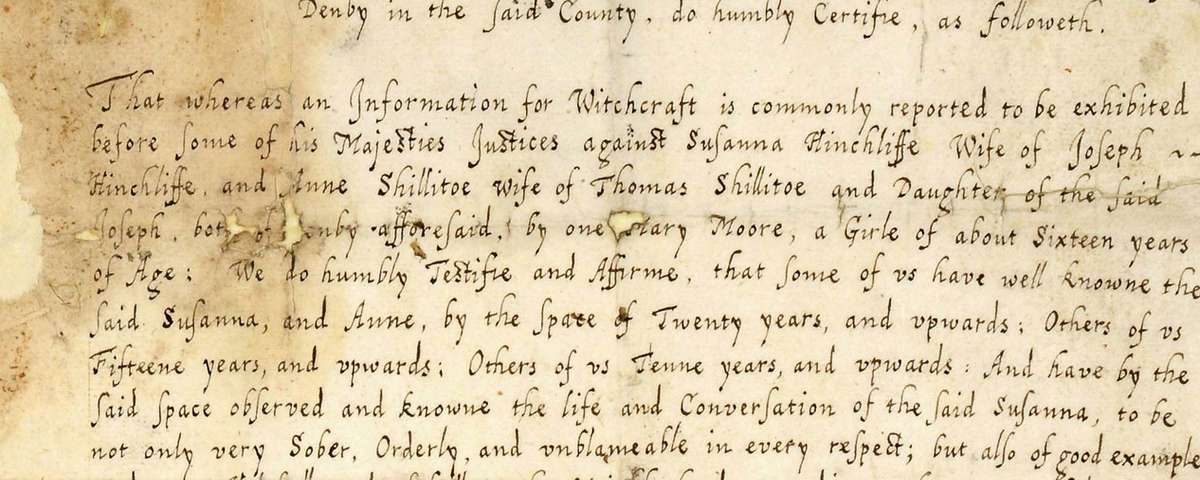 Denby in the said County, do humbly Certifie, as followeth.
That whereas an Information for Witchcraft is commonly reported to be exhibited
before some of his Majesties Justices against Susanna Hinchliffe Wife of Joseph ~~
Hinchliffe, and Anne Shillitoe wife of Thomas Shillitoe and Daughter of the said
Joseph, both of Denby afforesaid, by one Mary Moore, a Girle of about Sixteen years
of Age: We do humbly Testifie and Affirme, that some of vs have well knowne the
said Susanna, and Anne, by the space of Twenty years, and vpwards; Others of vs
Fifteene years, and vpwards; Others of vs Tenne years, and vpwards: And have by the
said space observed and knowne the life and Conversation of the said Susanna, to be
not only very Sober, Orderly, and vnblameable in every respect; but also of good example